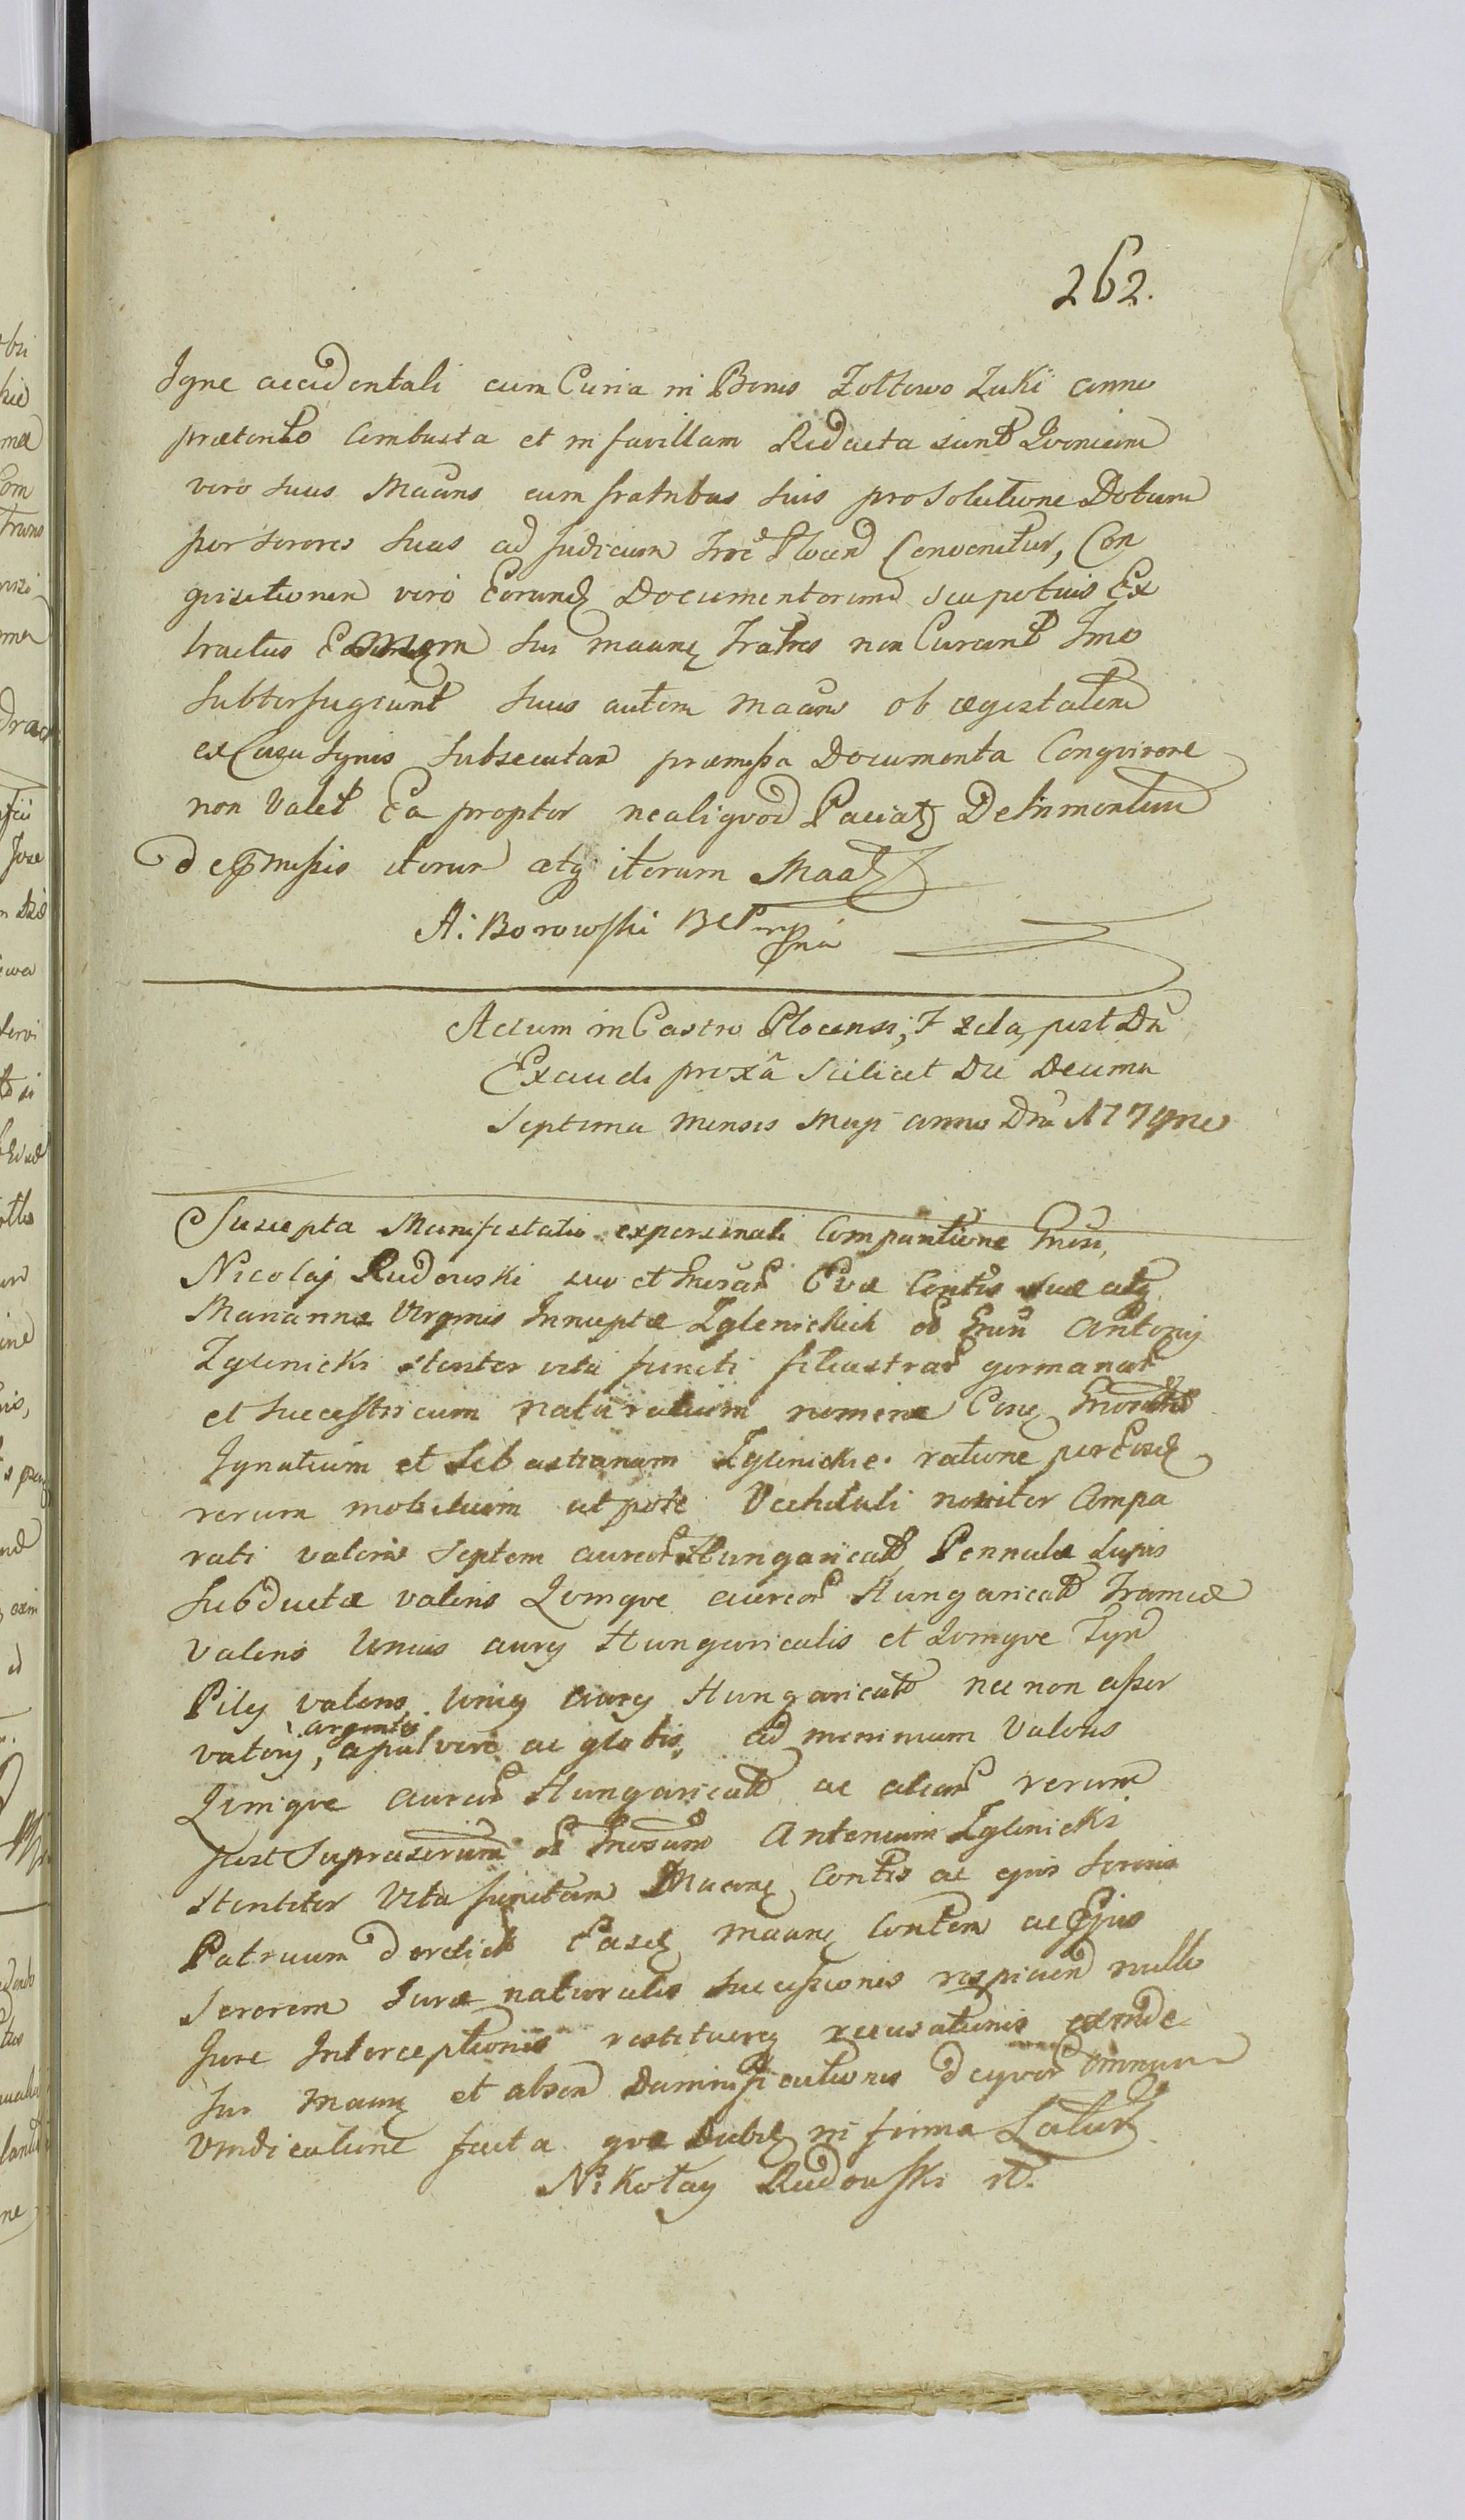 262.
Igne accidentali cum Curia in Bonis Zołtowo Zuki anno
præterito Combusta et in favillam Redacta sunt Qvoniam
vero suus Maãns cum fratribus suis pro Solutione Dotum
per Sorores Suas ad Judicium Plocen Convenitur, Con
qvisitionem vero Eorund Documentorum seu potius Ex
tractus Eorundem sui maanę Fratres non Curant Imo
Subterfugiunt Suus autem Maãns ob ægestatem
ex Casu Ignis Subsecutam præmissa Documenta Conqvirere
non Valet Ea propter ne aliqvod Paciat Detrimentum
de præmissis iterum atq iterum Maat
A: Borowski
Actum in Castro Plocensi, F 2da, post Dñ
Exaudi proxã Scilicet Die Decima
Septima mensis Maij anno Dñi 1779no
Suscepta Manifestatio ex personali Comparitione Gnosi
Nicolaj Rudowski suo et Gnosar Evæ Contis suæ atq
Mariannæ Virginis Innuptæ Zglenickich od Gnosi Antonij
Zglenicki stenter vita functi filiastrar germanar
et Successtricum naturalium nomine Cone Gnosos
Ignatium et Sebastianum Zglinickie ratione per Eosd
rerum mobilium utpote Vechituli noviter Compa
rati valoris Septem aureor Hungaricał Pennulæ Lupis
Subductæ valoris Qvinqve aureor Hungaricał Frameæ
Valoris Unius aurej Hungaricalis et Qvinqve
Pilej valoris Unig aurej Hungaricał nec non asser
vatorij, argentei a pulvere ac globis, ad minimum Valoris
Qvinqve aureor Hungaricał ac aliar rerum
post Suprascriptum od Gnosum Antonium Zglinicki
stentiter Vita functum Maanę Contis ac ejus Sororis
Patruum derelict Easd Maanę Contem ac Ejus
Sororem Jure naturalis Successionis respicien nullo
Jure Interceptionis restituereq recusationis exinde
sui Maanę et absen Damnificationis deqvor omnium
Vindicatione facta qvæ in forma Latius
Nikołay Rudowski